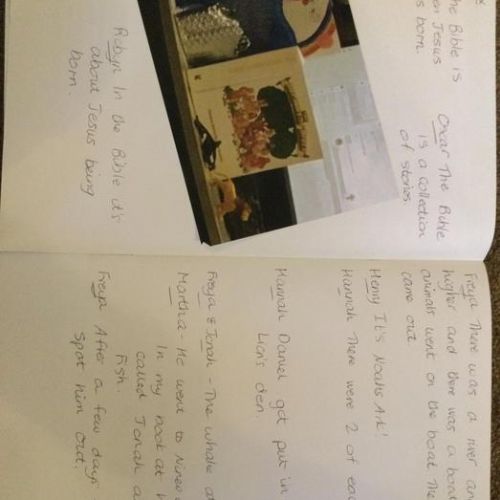 the Bible is
en Jesus
s born.
Oscar The Bible
is a collection
of stories
Robyn In the Bible it's
about Jesus being
born.
Freya There was a river an
higher and there was a boa
animals went on the boat Th
came out
Henry It's Noahs Ark!
Hannah There were 2 of eac
Hannah Daniel got put in
Lion's den.
Freya & Jonah - The whale a
Martha - He went to Nine
In my book at h
called Jonah a
Fish.
Freya After a few days
Spat him out.